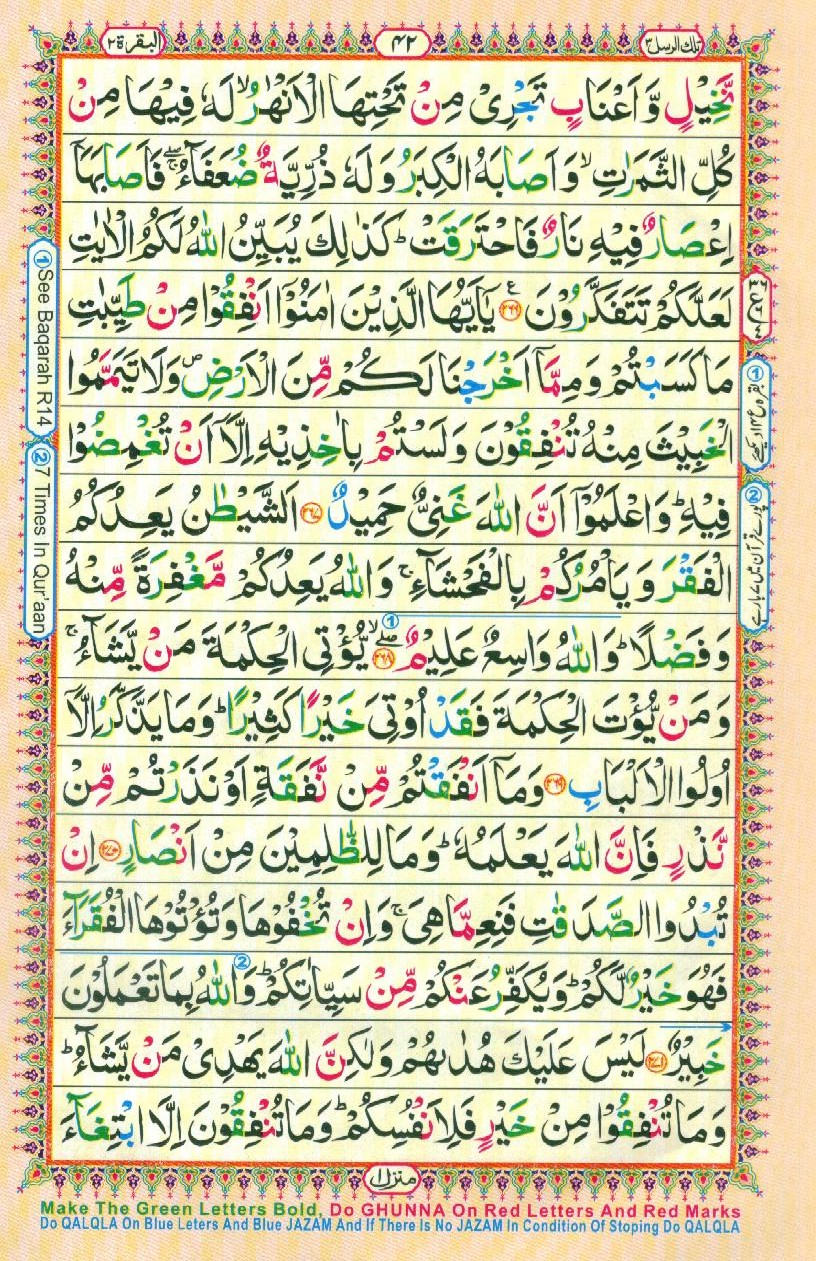 تلك الرسل ٣
٤٢
البقرة ٢
نَّخِيۡلٍ وَّاَعۡنَابٍ تَجۡرِىۡ مِنۡ تَحۡتِهَا الۡاَنۡهٰرُ ۙ لَهٗ فِيۡهَا مِنۡ
كُلِّ الثَّمَرٰتِ ۙ وَاَصَابَهُ الۡكِبَرُ وَلَهٗ ذُرِّيَّةٌ ضُعَفَآءُ ۖۚ فَاَصَابَهَاۤ
اِعۡصَارٌ فِيۡهِ نَارٌ فَاحۡتَرَقَتۡ ؕ كَذٰلِكَ يُبَيِّنُ اللّٰهُ لَكُمُ الۡاٰيٰتِ
لَعَلَّكُمۡ تَتَفَكَّرُوۡنَ ﴿۲۶۶﴾ ع يٰۤاَيُّهَا الَّذِيۡنَ اٰمَنُوۡۤا اَنۡفِقُوۡا مِنۡ طَيِّبٰتِ
مَا كَسَبۡتُمۡ وَمِمَّاۤ اَخۡرَجۡنَا لَكُمۡ مِّنَ الۡاَرۡضِ ۪ وَلَا تَيَمَّمُوا
الۡخَبِيۡثَ مِنۡهُ تُنۡفِقُوۡنَ وَلَسۡتُمۡ بِاٰخِذِيۡهِ اِلَّاۤ اَنۡ تُغۡمِضُوۡا
فِيۡهِ ؕ وَاعۡلَمُوۡۤا اَنَّ اللّٰهَ غَنِىٌّ حَمِيۡدٌ ﴿۲۶۷﴾ اَلشَّيۡطٰنُ يَعِدُكُمُ
الۡفَقۡرَ وَيَاۡمُرُكُمۡ بِالۡفَحۡشَآءِ ۚ وَاللّٰهُ يَعِدُكُمۡ مَّغۡفِرَةً مِّنۡهُ
وَفَضۡلًا ؕ وَاللّٰهُ وَاسِعٌ عَلِيۡمٌ ﴿۲۶۸﴾ ۖۙ ① يُّؤۡتِى الۡحِكۡمَةَ مَنۡ يَّشَآءُ ۚ
وَمَنۡ يُّؤۡتَ الۡحِكۡمَةَ فَقَدۡ اُوۡتِىَ خَيۡرًا كَثِيۡرًا ؕ وَمَا يَذَّكَّرُ اِلَّاۤ
اُولُوا الۡاَلۡبَابِ ﴿۲۶۹﴾ وَمَاۤ اَنۡفَقۡتُمۡ مِّنۡ نَّفَقَةٍ اَوۡ نَذَرۡتُمۡ مِّنۡ
نَّذۡرٍ فَاِنَّ اللّٰهَ يَعۡلَمُهٗ ؕ وَمَا لِلظّٰلِمِيۡنَ مِنۡ اَنۡصَارٍ ﴿۲۷۰﴾ اِنۡ
تُبۡدُوا الصَّدَقٰتِ فَنِعِمَّا هِىَ ۚ وَاِنۡ تُخۡفُوۡهَا وَتُؤۡتُوۡهَا الۡفُقَرَآءَ
فَهُوَ خَيۡرٌ لَّكُمۡ ؕ وَيُكَفِّرُ عَنۡكُمۡ مِّنۡ سَيِّاٰتِكُمۡ ؕ ② وَاللّٰهُ بِمَا تَعۡمَلُوۡنَ
خَبِيۡرٌ ﴿۲۷۱﴾ لَيۡسَ عَلَيۡكَ هُدٰٮهُمۡ وَلٰكِنَّ اللّٰهَ يَهۡدِىۡ مَنۡ يَّشَآءُ ؕ
وَمَا تُنۡفِقُوۡا مِنۡ خَيۡرٍ فَلِاَنۡفُسِكُمۡ ؕ وَمَا تُنۡفِقُوۡنَ اِلَّا ابۡتِغَآءَ
منزل ١
① See Baqarah R14
② 7 Times In Qur'aan
① بقرہ ع ۱۴ دیکھیے
② پورے قرآن میں ۷ بار ہے
Make The Green Letters Bold, Do GHUNNA On Red Letters And Red Marks
Do QALQLA On Blue Leters And Blue JAZAM And If There Is No JAZAM In Condition Of Stoping Do QALQLA